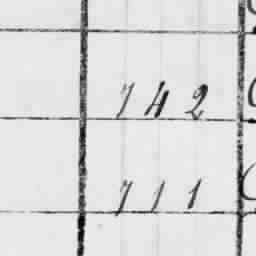 742
711